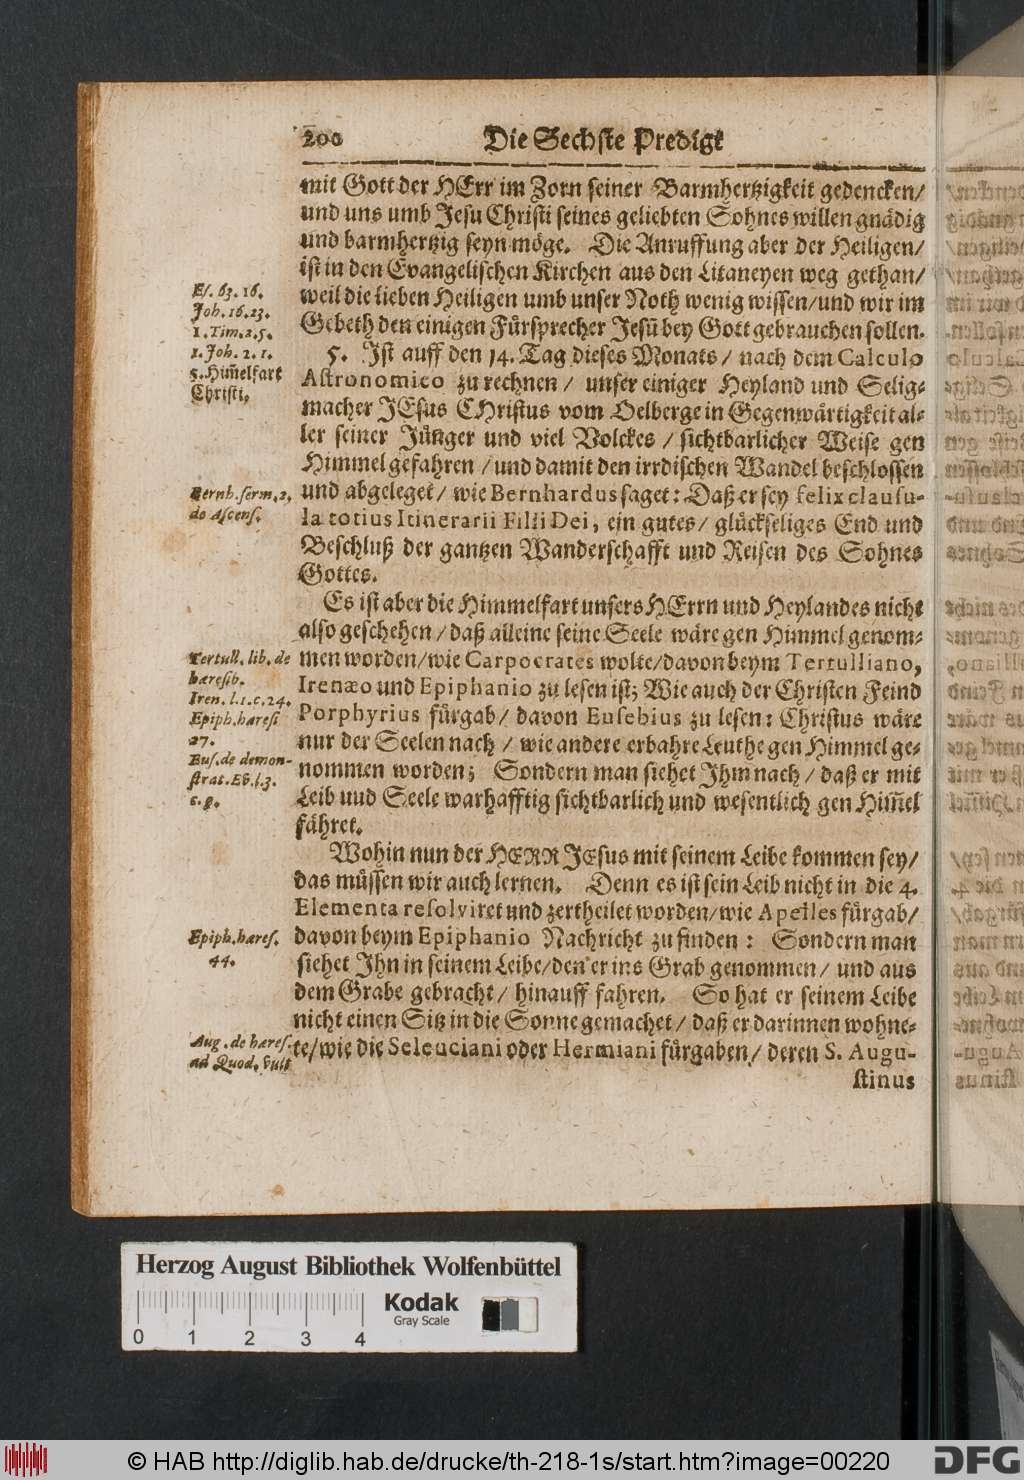 200 Die Sechste Predigt
mit Gott der HErr im Zorn seiner Barmhertzigkeit gedencken/
und uns umb Jesu Christi seines geliebten Sohnes willen gnädig
und barmhertzig seyn möge. Die Anruffung aber der Heiligen/
ist in den Evangelischen Kirchen aus den Litaneyen weg gethan/
weil die lieben Heiligen umb unser Noth wenig wissen/und wir im
Gebeth den einigen Fürsprecher Jesū bey Gott gebrauchen sollen.
Es. 63. 16.
Joh. 16. 23.
1. Tim. 2. 5.
1. Joh. 2. 1.
5. Him̄elfart
Christi.
5. Ist auff den 14. Tag dieses Monats/ nach dem Calculo
Astronomico zu rechnen/ unser einiger Heyland und Selig-
macher JEsus CHristus vom Oelberge in Gegenwärtigkeit al-
ler seiner Jünger und viel Volckes/ sichtbarlicher Weise gen
Himmel gefahren/und damit den irrdischen Wandel beschlossen
und abgeleget/ wie Bernhardus saget: Daß er sey felix clausu-
la totius Itinerarii Filii Dei, ein gutes/ glückseliges End und
Beschluß der gantzen Wanderschafft und Reisen des Sohnes
Gottes.
Bernh. serm. 2.
de Ascens.
Es ist aber die Himmelfart unsers HErrn und Heylandes nicht
also geschehen/daß alleine seine Seele wäre gen Himmel genom-
men worden/wie Carpocrates wolte/davon beym Tertulliano,
Irenæo und Epiphanio zu lesen ist; Wie auch der Christen Feind
Porphyrius fürgab/ davon Eusebius zu lesen: Christus wäre
nur der Seelen nach/ wie andere erbahre Leuthe gen Himmel ge-
nommen worden; Sondern man siehet Ihm nach/ daß er mit
Leib uud Seele warhafftig sichtbarlich und wesentlich gen Him̄el
fähret.
Tertull. lib. de
hæresib.
Iren. l. 1. c. 24.
Epiph. hæresi
27.
Eus. de demon-
strat. Ev. l. 3.
c. 8.
Wohin nun der HERR JEsus mit seinem Leibe kommen sey/
das müssen wir auch lernen. Denn es ist sein Leib nicht in die 4.
Elementa resolviret und zertheilet worden/wie Apelles fürgab/
davon beym Epiphanio Nachricht zu finden: Sondern man
siehet Ihn in seinem Leibe/den er ins Grab genommen/ und aus
dem Grabe gebracht/ hinauff fahren. So hat er seinem Leibe
nicht einen Sitz in die Sonne gemachet/ daß er darinnen wohne-
te/wie die Seleuciani oder Hermiani fürgaben/ deren S. Augu-
stinus
Epiph. hæres.
44.
Aug. de hæres.
ad Quod. Vult
Herzog August Bibliothek Wolfenbüttel
Kodak
Gray Scale
0 1 2 3 4
© HAB http://diglib.hab.de/drucke/th-218-1s/start.htm?image=00220
DFG